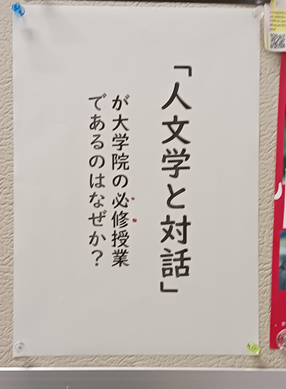 「人文学と対話」
が大学院の必修授業
であるのはなぜか？